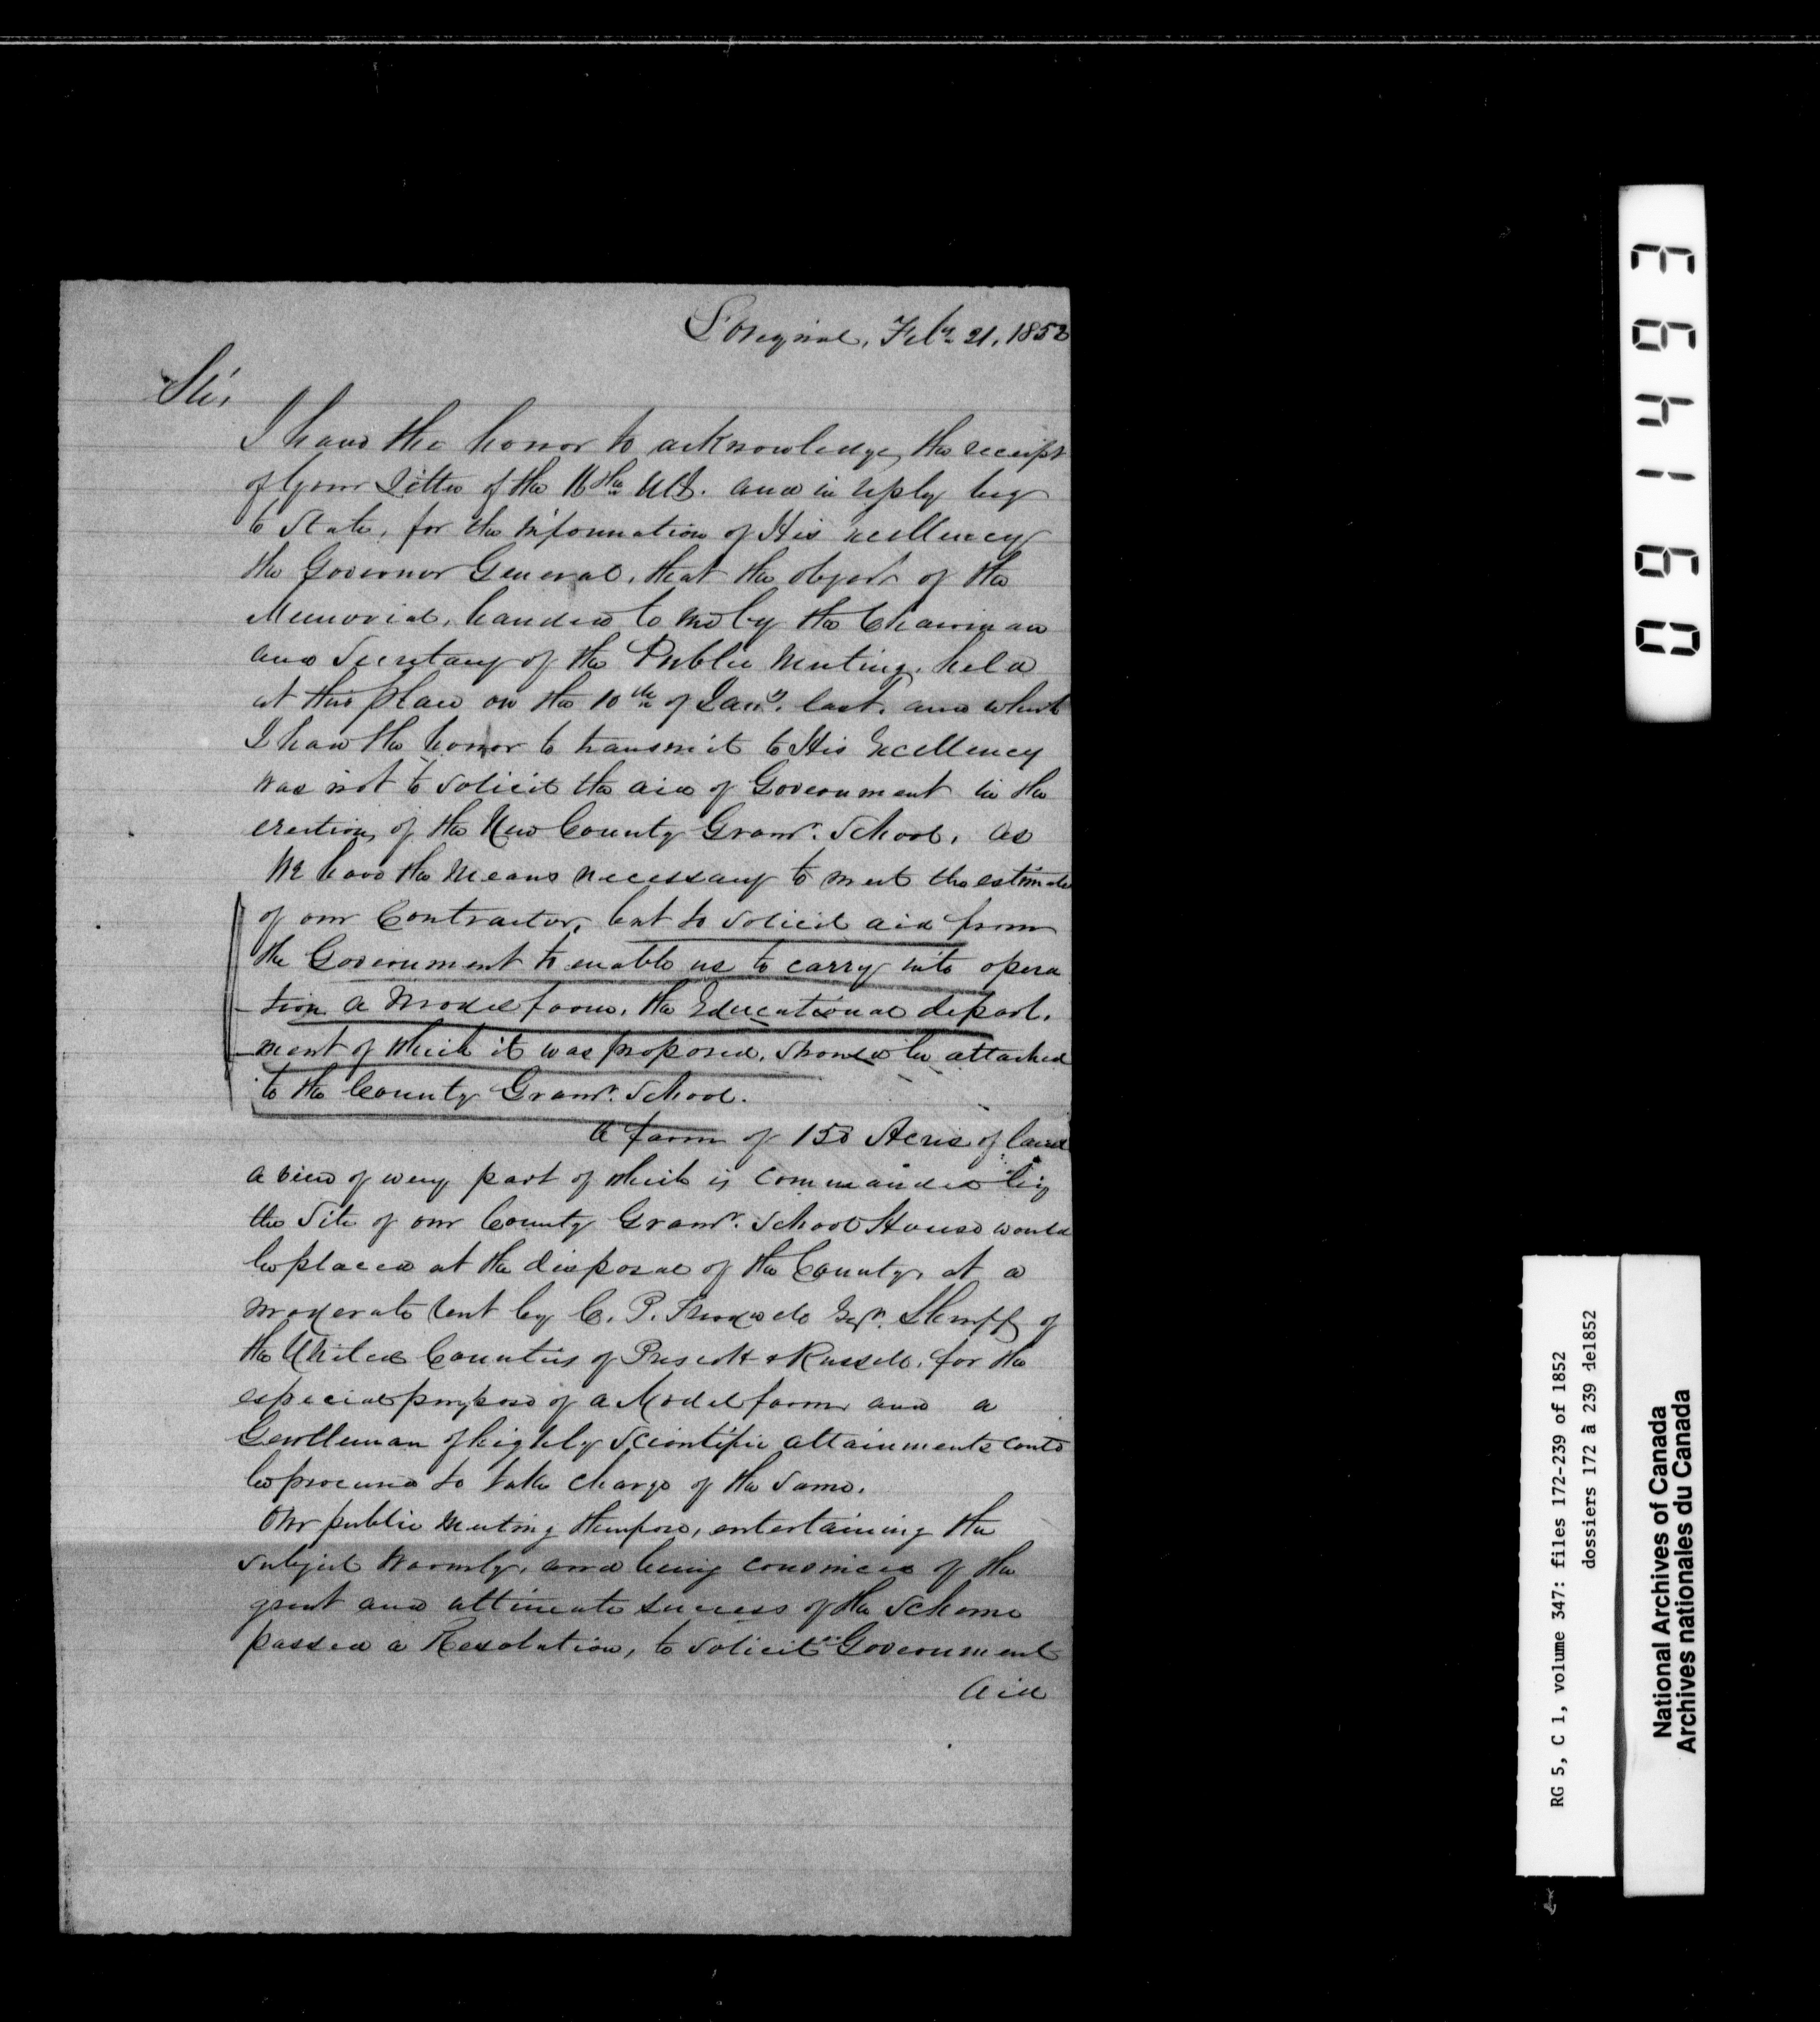 L'Orignal, Feby 21, 1852
Sir,
I have the honor to acknowledge the receipt
of your Letter of the 16th Ult. and in reply beg
to State, for the information of His Excellency
the Governor General, that the object of the
Memorial, handed to me by the Chairman
and Secretary of the Public Meeting, held
at this place on the 10th of Jany. last, and which
I had the honor to transmit to His Excellency
was not to solicit the aid of Government in the
erection, of the New County Gramr. School, as
We have the Means necessary to meet the estimate
of our Contractor, but to solicit aid from
the Government to enable us to carry into opera
-tion a Model farm, the Educational depart.
-ment of which it was proposed, should be attached
to the County Gramr. School.
A farm of 150 Acres of land
a view of every part of which is commanded by
the Site of our County Gramr. School House would
be placed at the disposal of the County, at a
moderate rent by C. P. Treadwell Esqr. Sheriff of
the United Counties of Prescott & Russell, for the
especial purpose of a Model farm and a
Gentleman of highly Scientific attainments could
be procured to take charge of the same.
Our public Meeting therefore, entertaining the
subject warmly, and being convinced of the
great and ultimate success of the Scheme
passed a Resolution, to solicit Government
aid
091493
RG 5, C 1, volume 347: files 172-239 of 1852
dossiers 172 à 239 de1852
National Archives of Canada
Archives nationales du Canada